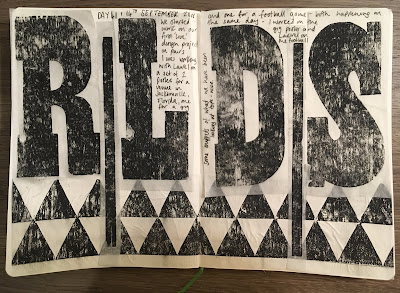 REDS
DAY 1: 14th SEPTEMBER
We started
work on our
first live
design project
in pairs.
I was working
with Laurel on
a set of 2
posters for a
venue in
Jacksonville,
Florida, one
for a gig
and one for a football game - both happening on
the same day - I worked on the
gig poster and
Laurel on
the football
Some
of what we have been